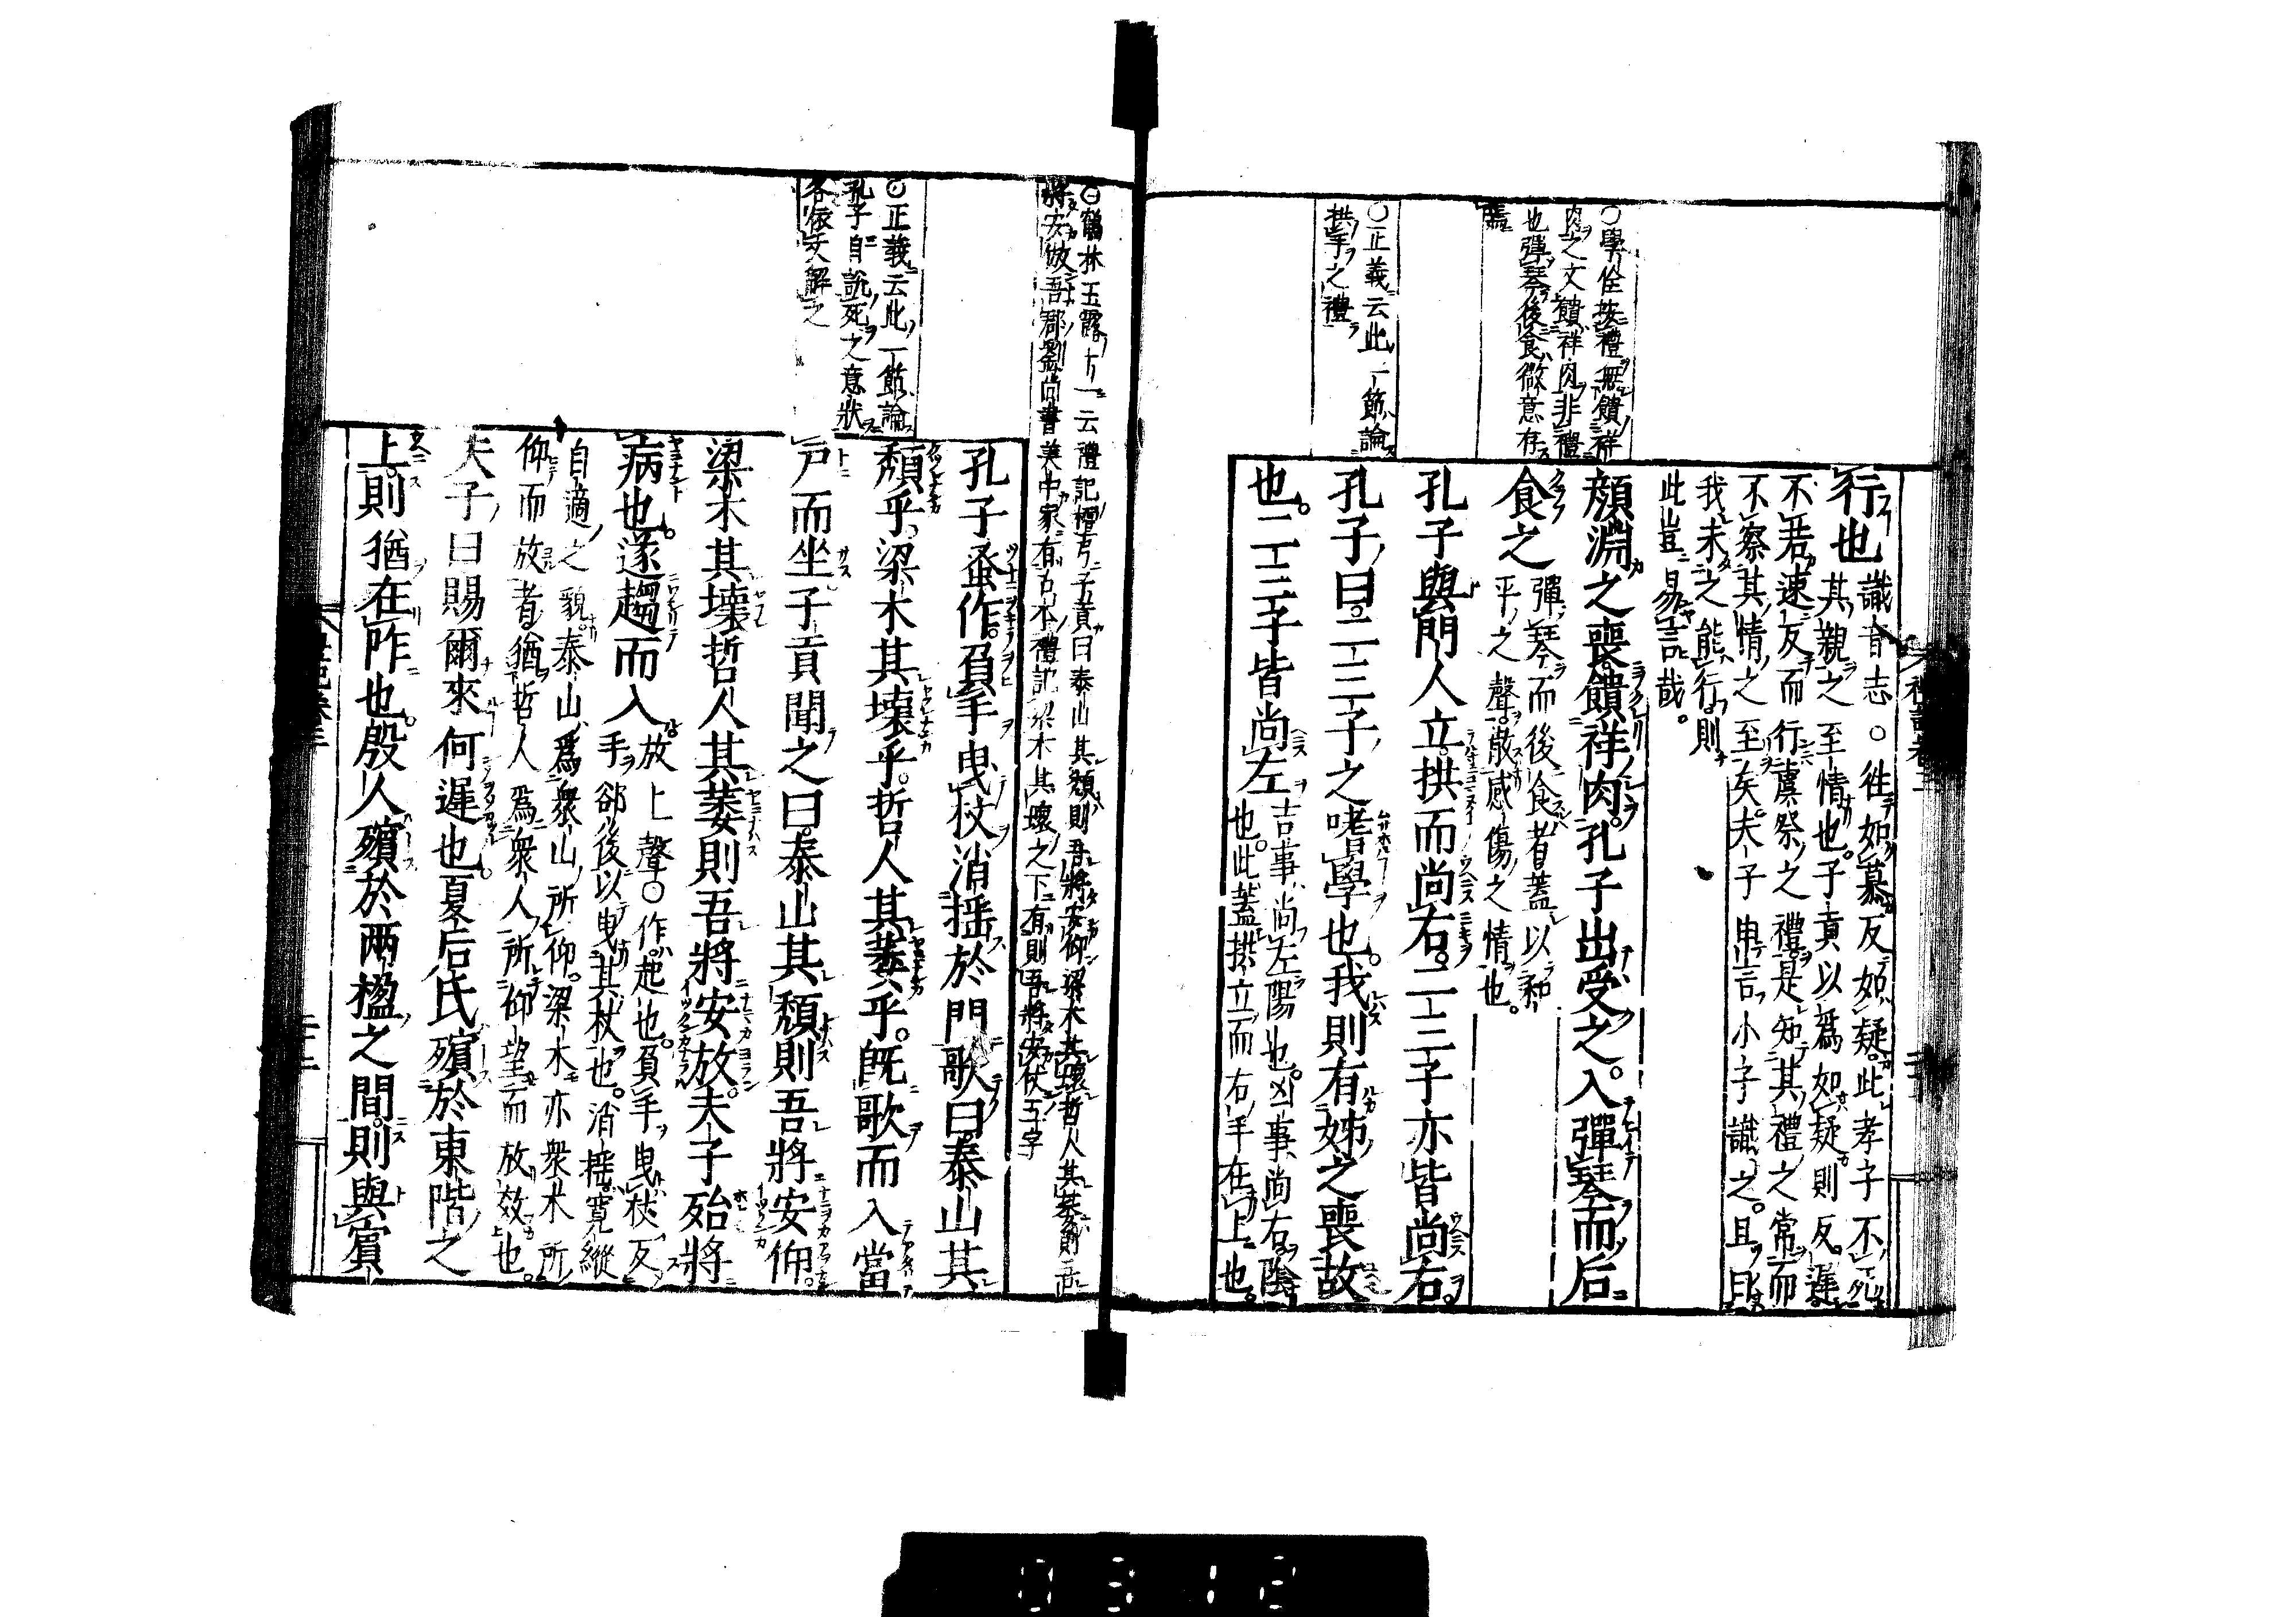 ○學佺按禮無饋祥
肉之文饋祥肉非禮
也彈琴後食微意存
焉
○正義云此一節論
拱手之禮
行也識音志○徃如慕反如疑此孝子不死
其親之至情也子貢以爲如疑則反遲
不若速反而行虞祭之禮是知其禮之常而
不察其情之至矣夫子申言小子識之且曰
我未之能行則
此豈易言哉
顏淵之喪饋祥肉孔子出受之入彈琴而后
食之彈琴而後食者蓋以和
平之聲散感傷之情也
孔子與門人立拱而尚右二三子亦皆尚右
孔子曰二三子之嗜學也我則有姊之喪故
也二三子皆尚左吉事尚左陽也凶事尚右陰
也此蓋拱立而右手在上也
○鶴林玉露十一云禮記檀弓子貢曰泰山其頹則吾將安仰梁木其壞哲人其萎則吾
將安倣吾郡劉尚書美中家有古本禮記梁木其壞之下有則吾將安仗五字
○正義云此一節論
孔子自說死之意狀
各依文解之
孔子蚤作負手曳杖消揺於門歌曰泰山其
頹乎梁木其壞乎哲人其萎乎既歌而入當
戸而坐子貢聞之曰泰山其頹則吾將安仰
梁木其壞哲人其萎則吾將安放夫子殆將
病也遂趨而入放上聲○作起也負手曳杖反
手郤後以曳其杖也消揺寛縱
自適之貌泰山爲衆山所仰梁木亦衆木所
仰而放者猶哲人爲衆人所仰望而放效也
夫子曰賜爾來何遲也夏后氏殯於東階之
上則猶在阼也殷人殯於兩楹之間則與賓